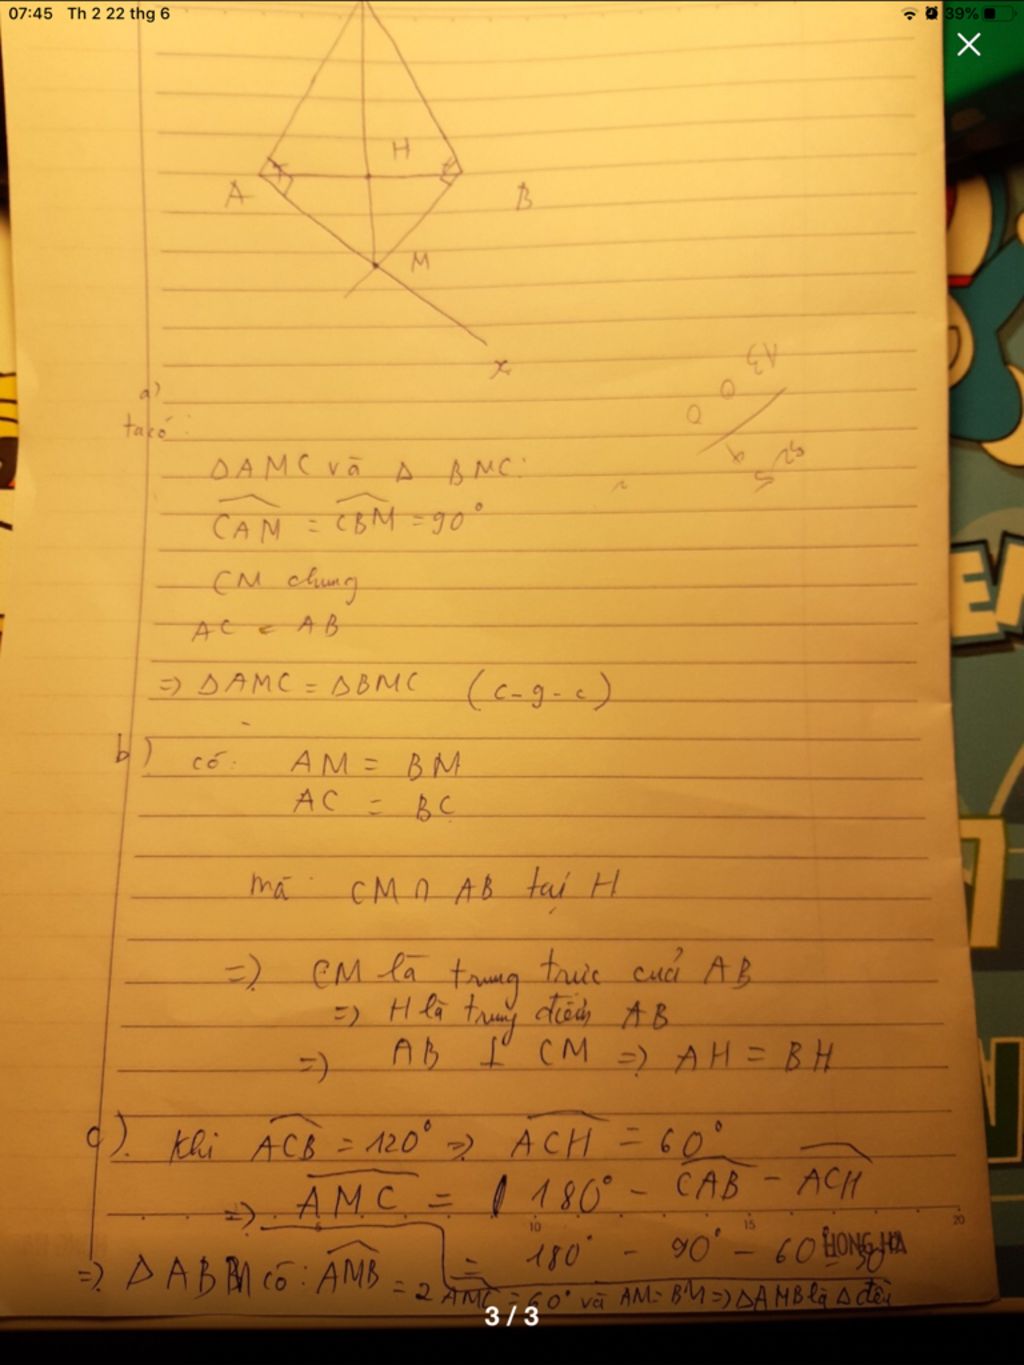 07:45 Th 2 22 thg 6
39%
H
A
B
M
x
a)
ta có:
ΔAMC và Δ BMC:
CAM = CBM = 90°
CM chung
AC = AB
=> ΔAMC = ΔBMC (c-g-c)
b) có: AM = BM
AC = BC
mà CM ∩ AB tại H
=> CM là trung trực cuả AB
=> H là trung điểm AB
=> AB ⊥ CM => AH = BH
c). Khi ACB = 120° => ACH = 60°
=> AMC = 180° - CAB - ACH
= 180° - 90° - 60
10 15 20
HONG HA
=> Δ ABM có: AMB = 2 AMC = 60° và AM = BM => ΔAMB là Δ đều
3 / 3
EN